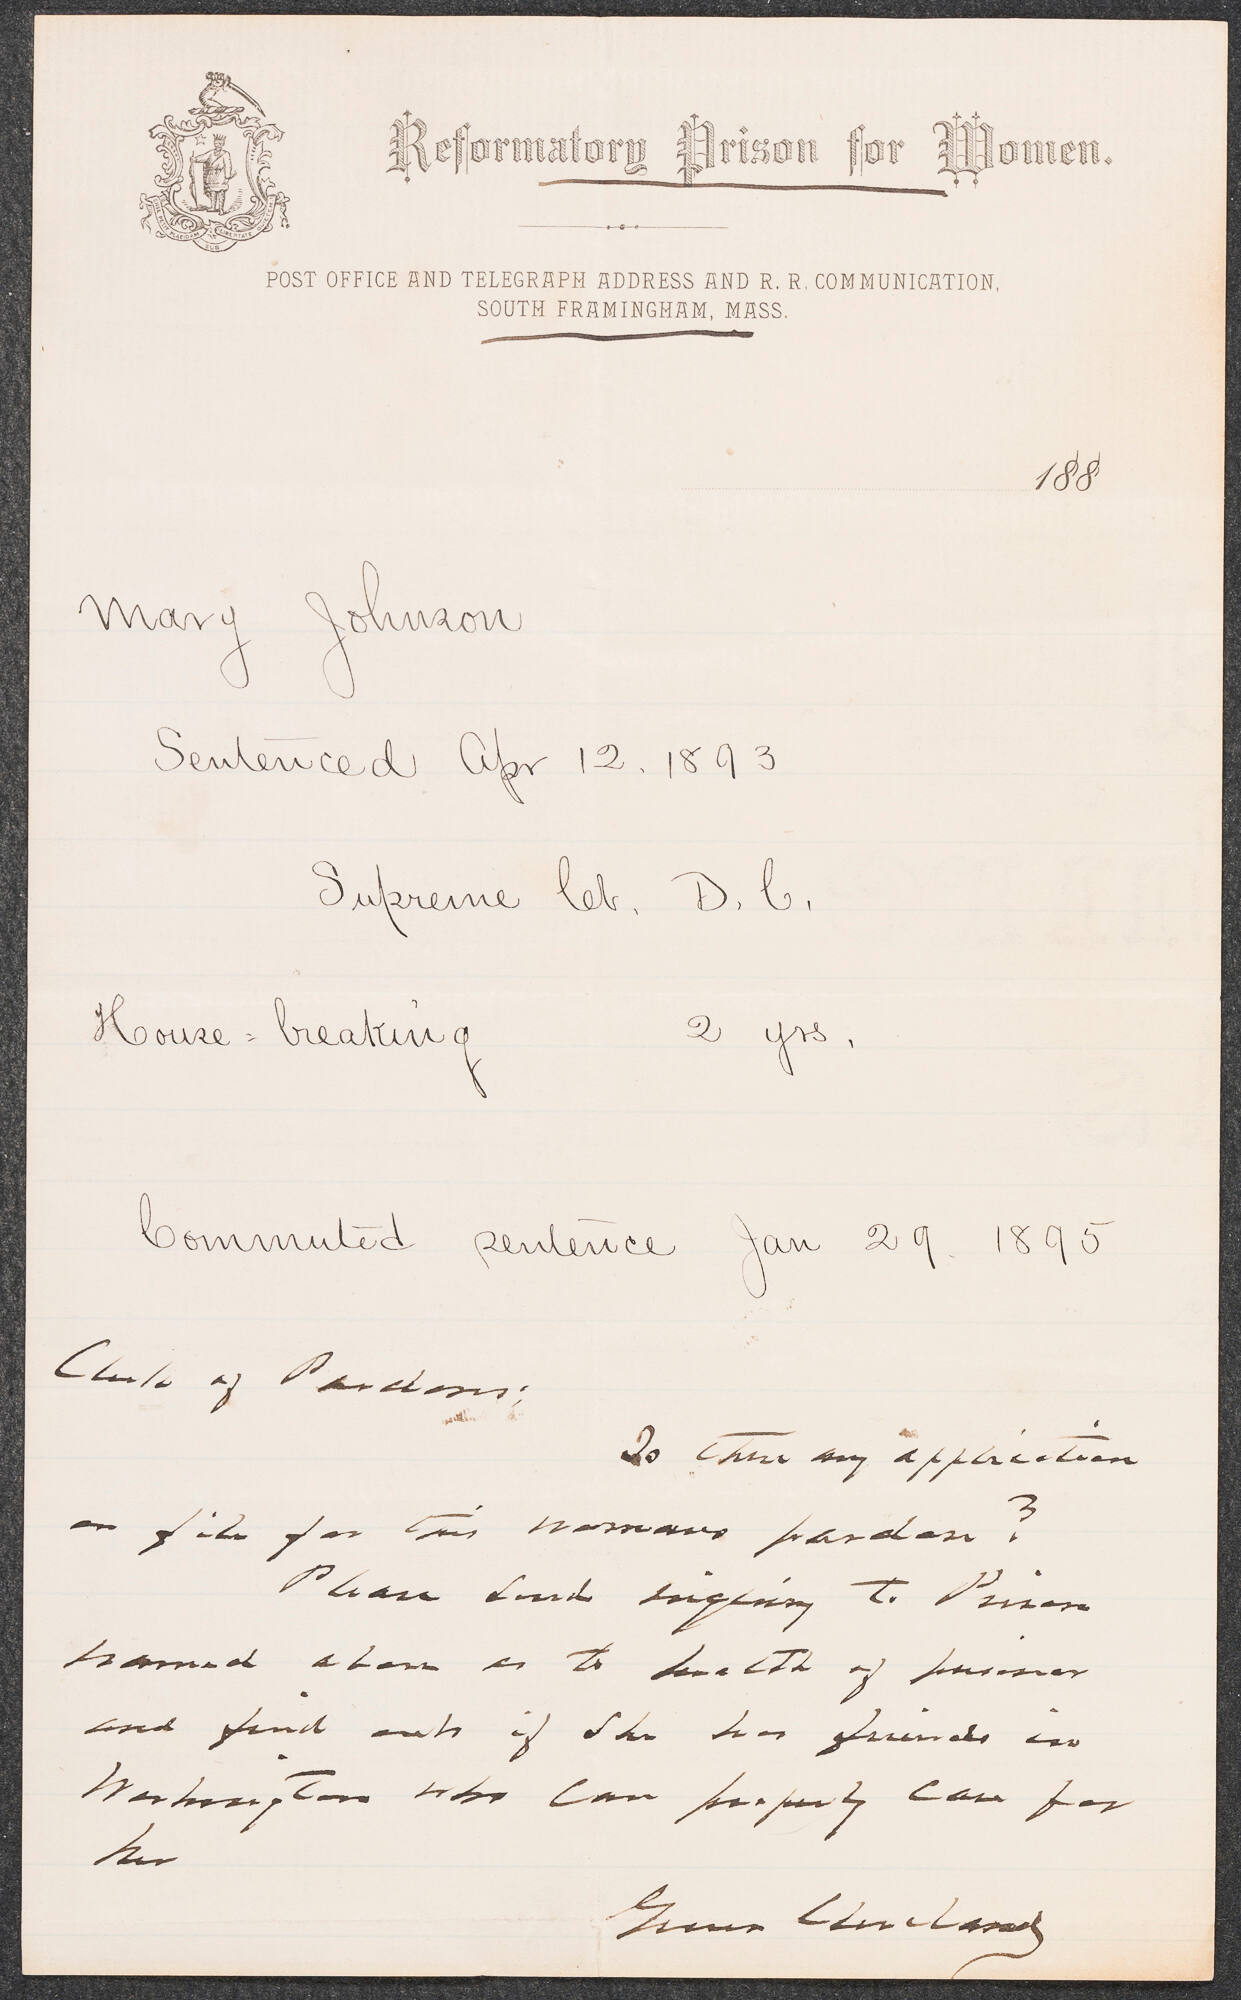 Reformatory Prison for Women.
ENSE PETIT PLACIDAM SUB LIBERTATE QUIETEM
POST OFFICE AND TELEGRAPH ADDRESS AND R. R. COMMUNICATION,
SOUTH FRAMINGHAM, MASS.
188
Mary Johnson
Sentenced Apr 12. 1893
Supreme Ct. D. C.
House=breaking 2 yrs.
Commuted sentence Jan 29. 1895
Clerk of Pardons;
Is there any application
on file for this womans pardon?
Please send inquiry to Prison
named above as to health of prisoner
and find out if she has friends in
Washington who can properly care for
her
Grover Cleveland